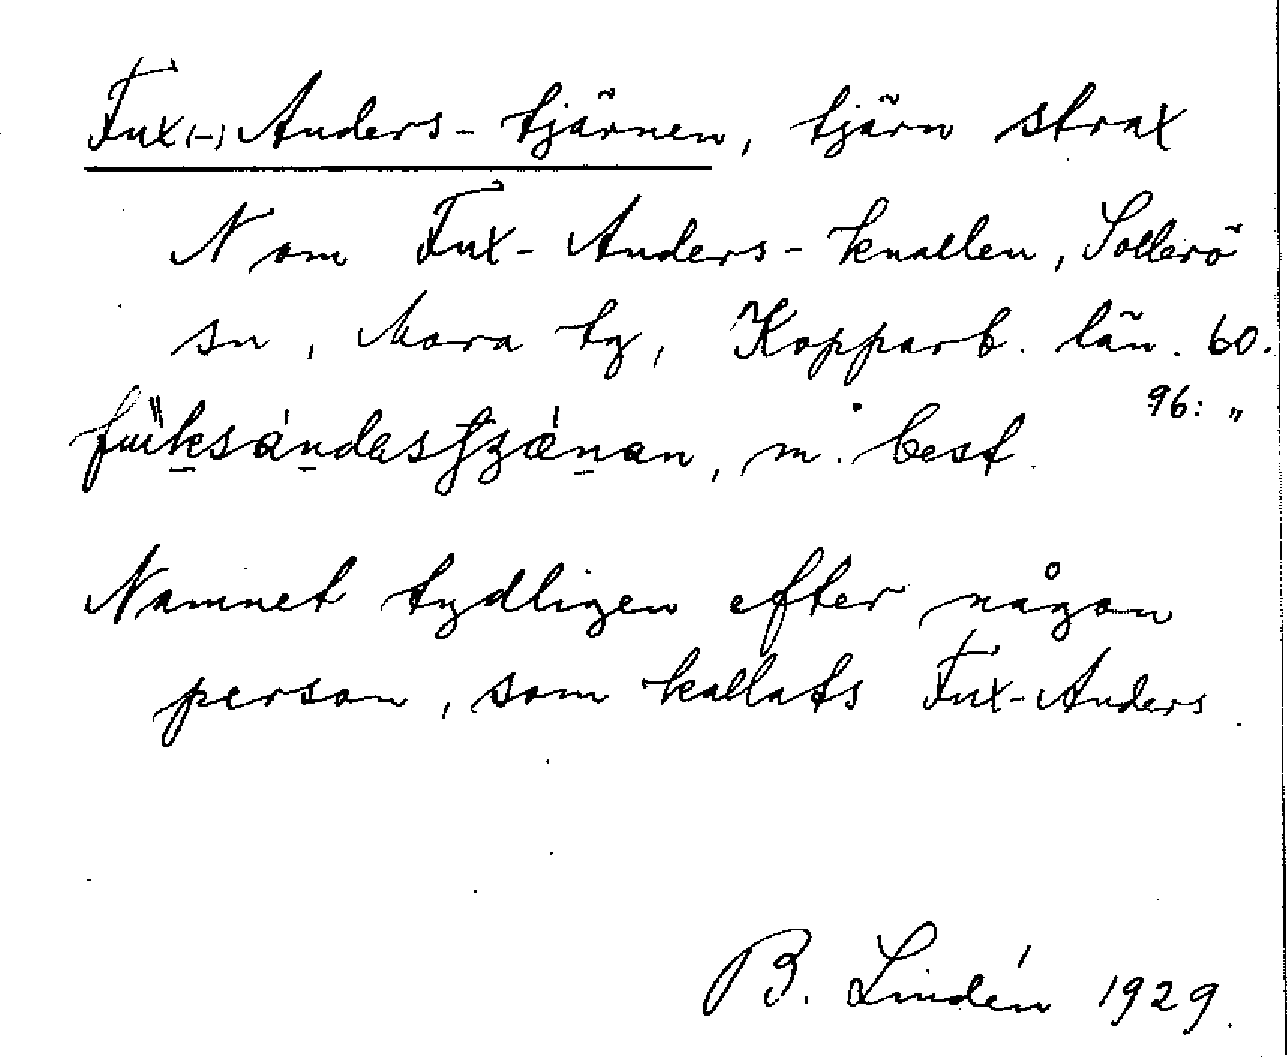 Fux(-)Anders-tjärnen, tjärn strax
N om Fux-Anders-knallen, Sollerö
sn, Mora tg, Kopparb. län. 60.
96: „
m. best.
Namnet tydligen efter någon
person, som kallats Fux-Anders.
B. Lindén 1929.